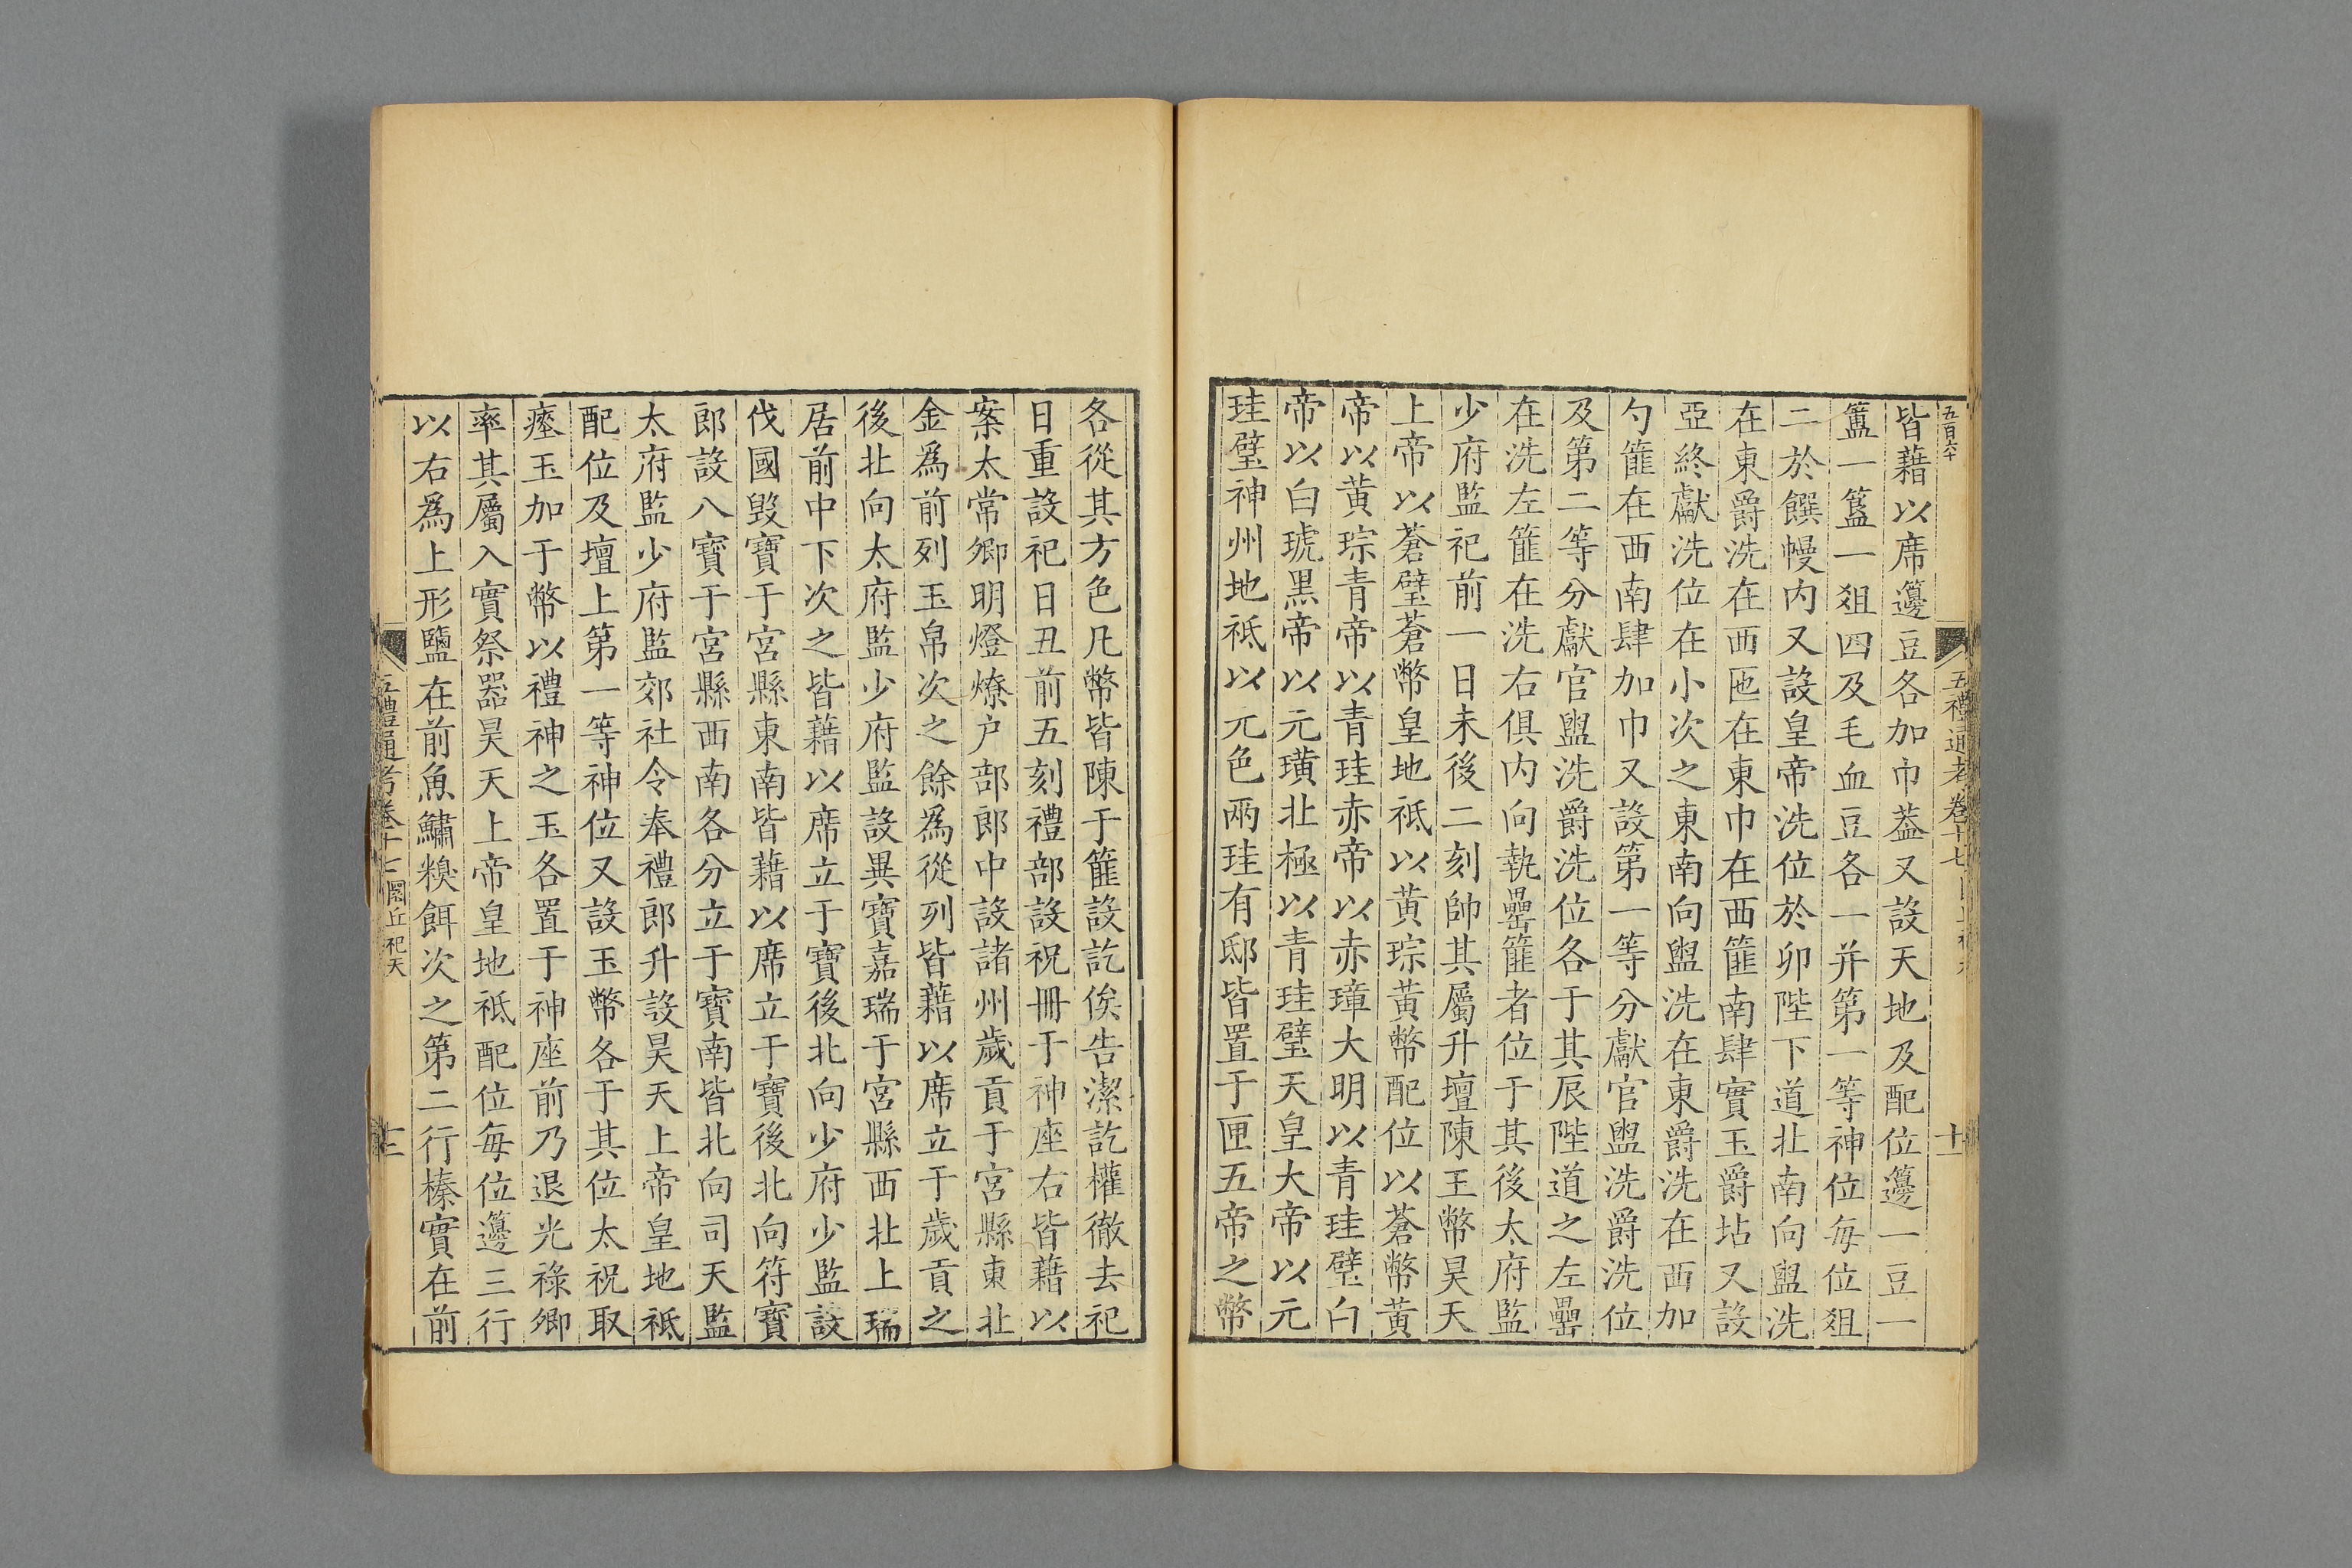 五百六十
五禮通考卷十七
十一
皆藉以席籩豆各加巾葢又設天地及配位籩一豆一
簠一簋一俎四及毛血豆各一并第一等神位每位俎
二於饌幔内又設皇帝洗位於卯陛下道北南向盥洗
在東爵洗在西匜在東巾在西篚南肆實玉爵坫又設
亞終獻洗位在小次之東南向盥洗在東爵洗在西加
勺篚在西南肆加巾又設第一等分獻官盥洗爵洗位
及第二等分獻官盥洗爵洗位各于其辰陛道之左罍
在洗左篚在洗右俱内向執罍篚者位于其後太府監
少府監祀前一日未後二刻帥其屬升壇陳玉幣昊天
上帝以蒼璧蒼幣皇地祗以黄琮黄幣配位以蒼幣黄
帝以黄琮青帝以青珪赤帝以赤璋大明以青珪璧白
帝以白琥黒帝以元璜北極以青珪璧天皇大帝以元
珪璧神州地祗以元色兩珪有邸皆置于匣五帝之幣
各從其方色凡幣皆陳于篚設訖俟告潔訖權徹去祀
日重設祀日丑前五刻禮部設祝冊于神座右皆藉以
案太常卿明燈燎户部郎中設諸州歲貢于宮縣東北
金爲前列玉帛次之餘爲從列皆藉以席立于歲貢之
後北向太府監少府監設異寶嘉瑞于宮縣西北上瑞
居前中下次之皆藉以席立于寶後北向少府少監設
伐國毁寶于宮縣東南皆藉以席立于寶後北向符寶
郎設八寶于宮縣西南各分立于寶南皆北向司天監
太府監少府監郊社令奉禮郎升設昊天上帝皇地祗
配位及壇上第一等神位又設玉幣各于其位太祝取
瘞玉加于幣以禮神之玉各置于神座前乃退光祿卿
率其屬入實祭器昊天上帝皇地祗配位每位籩三行
以右爲上形鹽在前魚鱐糗餌次之第二行榛實在前
五禮通考卷十七 圜丘祀天
十二